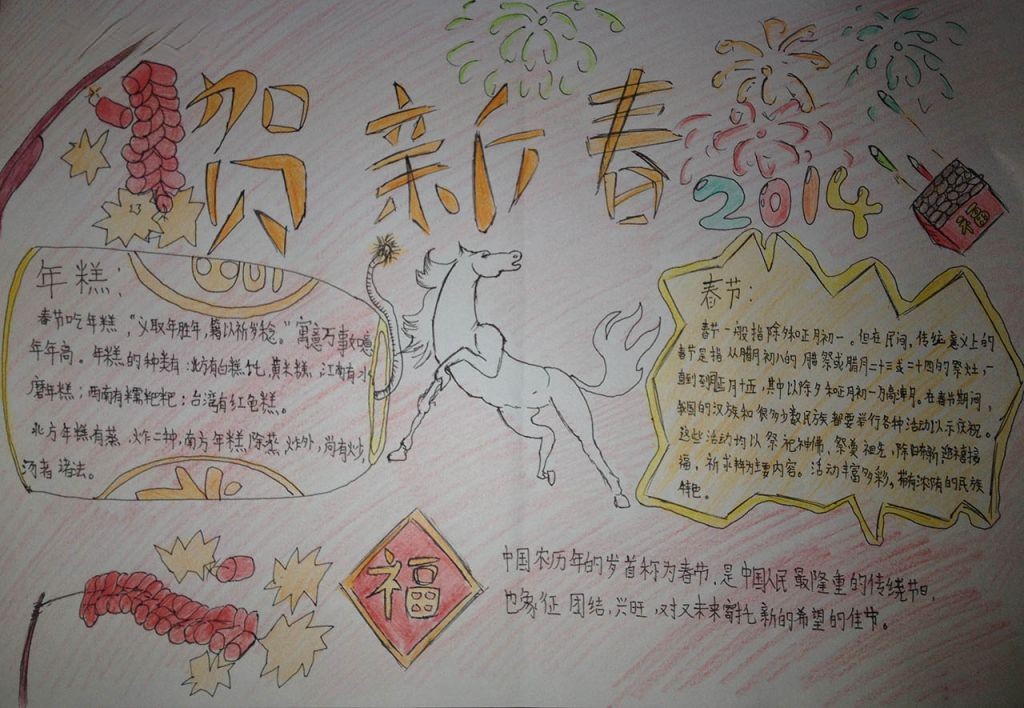 贺新春
2014
福
13
年糕：
春节吃年糕，“义取年胜年，藉以祈岁稔。”寓意万事如意
年年高。年糕的种类有：北方有白糕饦，黄米糕，江南有水
磨年糕；西南有糯粑粑；台湾有红龟糕。
北方年糕有蒸、炸二种，南方年糕除蒸、炸外，尚有炒，
汤者诸法。
春节：
春节一般指除夕和正月初一。但在民间，传统意义上的
春节是指从腊月初八的腊祭或腊月二十三或二十四的祭灶，一
直到正月十五，其中以除夕和正月初一为高潮月。在春节期间，
我国的汉族和很多少数民族都要举行各种活动以示庆祝。
这些活动均以祭祀神佛、祭奠祖先、除旧布新迎禧接
福、祈求 为主要内容。活动丰富多彩，带有浓 的民族
特色。
福
中国农历年的岁首称为春节，是中国人民最隆重的传统节日，
也象征团结，兴旺，对又未来寄托新的希望的佳节。